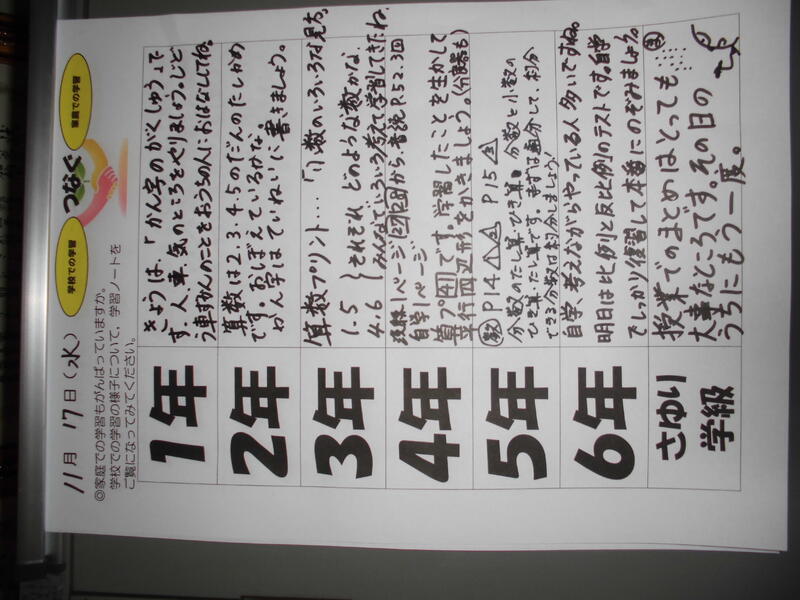 11月 17日(水)
◎家庭での学習もがんばっていますか。
学校での学習の様子について、学習ノートを
ご覧になってみてください。
学校での学習
つなぐ
家庭での学習
1年
きょうは、「かん字のがくしゅう」で
す。人、車、気のところをやりましょう。じど
う車ずかんのことをおうちの人におはなししてね。
2年
算数は2.3.4.5のだんのたしかめ
です。おぼえているかな。
かん字はていねいに書きましょう。
3年
算数プリント…「1」数のいろいろな見方。
1.5
4.6
それぞれ、どのような数かな。
みんなでいろいろ考えて学習してきたね。
4年
1ページ
から音読P.52.3回
自学1ページ
算プ41です。学習したことを生かして
平行四辺形をかきましょう。(分度器も)
5年
P14 P15
分数のたし算・ひき算 分数と小数の
ひき算、たし算です。まずは通分して、約分
できる分数は約分しましょう!
6年
自学、考えながらやっている人多いですね。
明日は比例と反比例のテストです。自学
でしっかり復習して本番にのぞみましょう。
さゆり
学級
授業でのまとめはとっても
大事なところです。その日の
うちにもう一度。